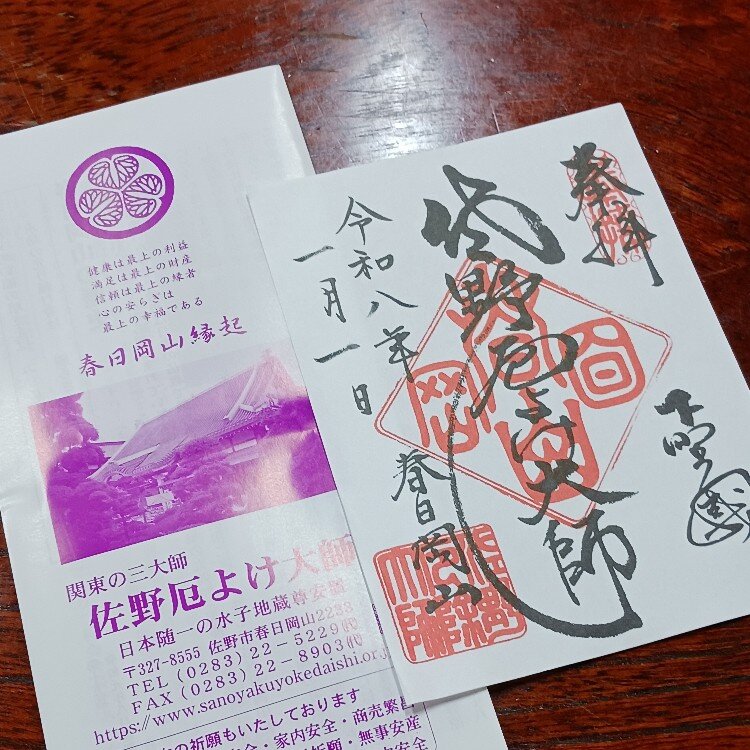 健康は最上の利益
満足は最上の財産
信頼は最上の縁者
心の安らぎは
最上の幸福である
春日岡山縁起
関東の三大師
佐野厄よけ大師
日本随一の水子地蔵尊安置
〒327-8555 佐野市春日岡山2233
TEL (0283) 22-5229代
FAX (0283) 22-8903代
https://www.sanoyakuyokedaishi.or.j
の祈願もいたしております
全・家内安全・商売繁昌
祈願・無事安産
奉拝
下野國
佐野厄よけ大師
春日岡山
令和八年
一月一日